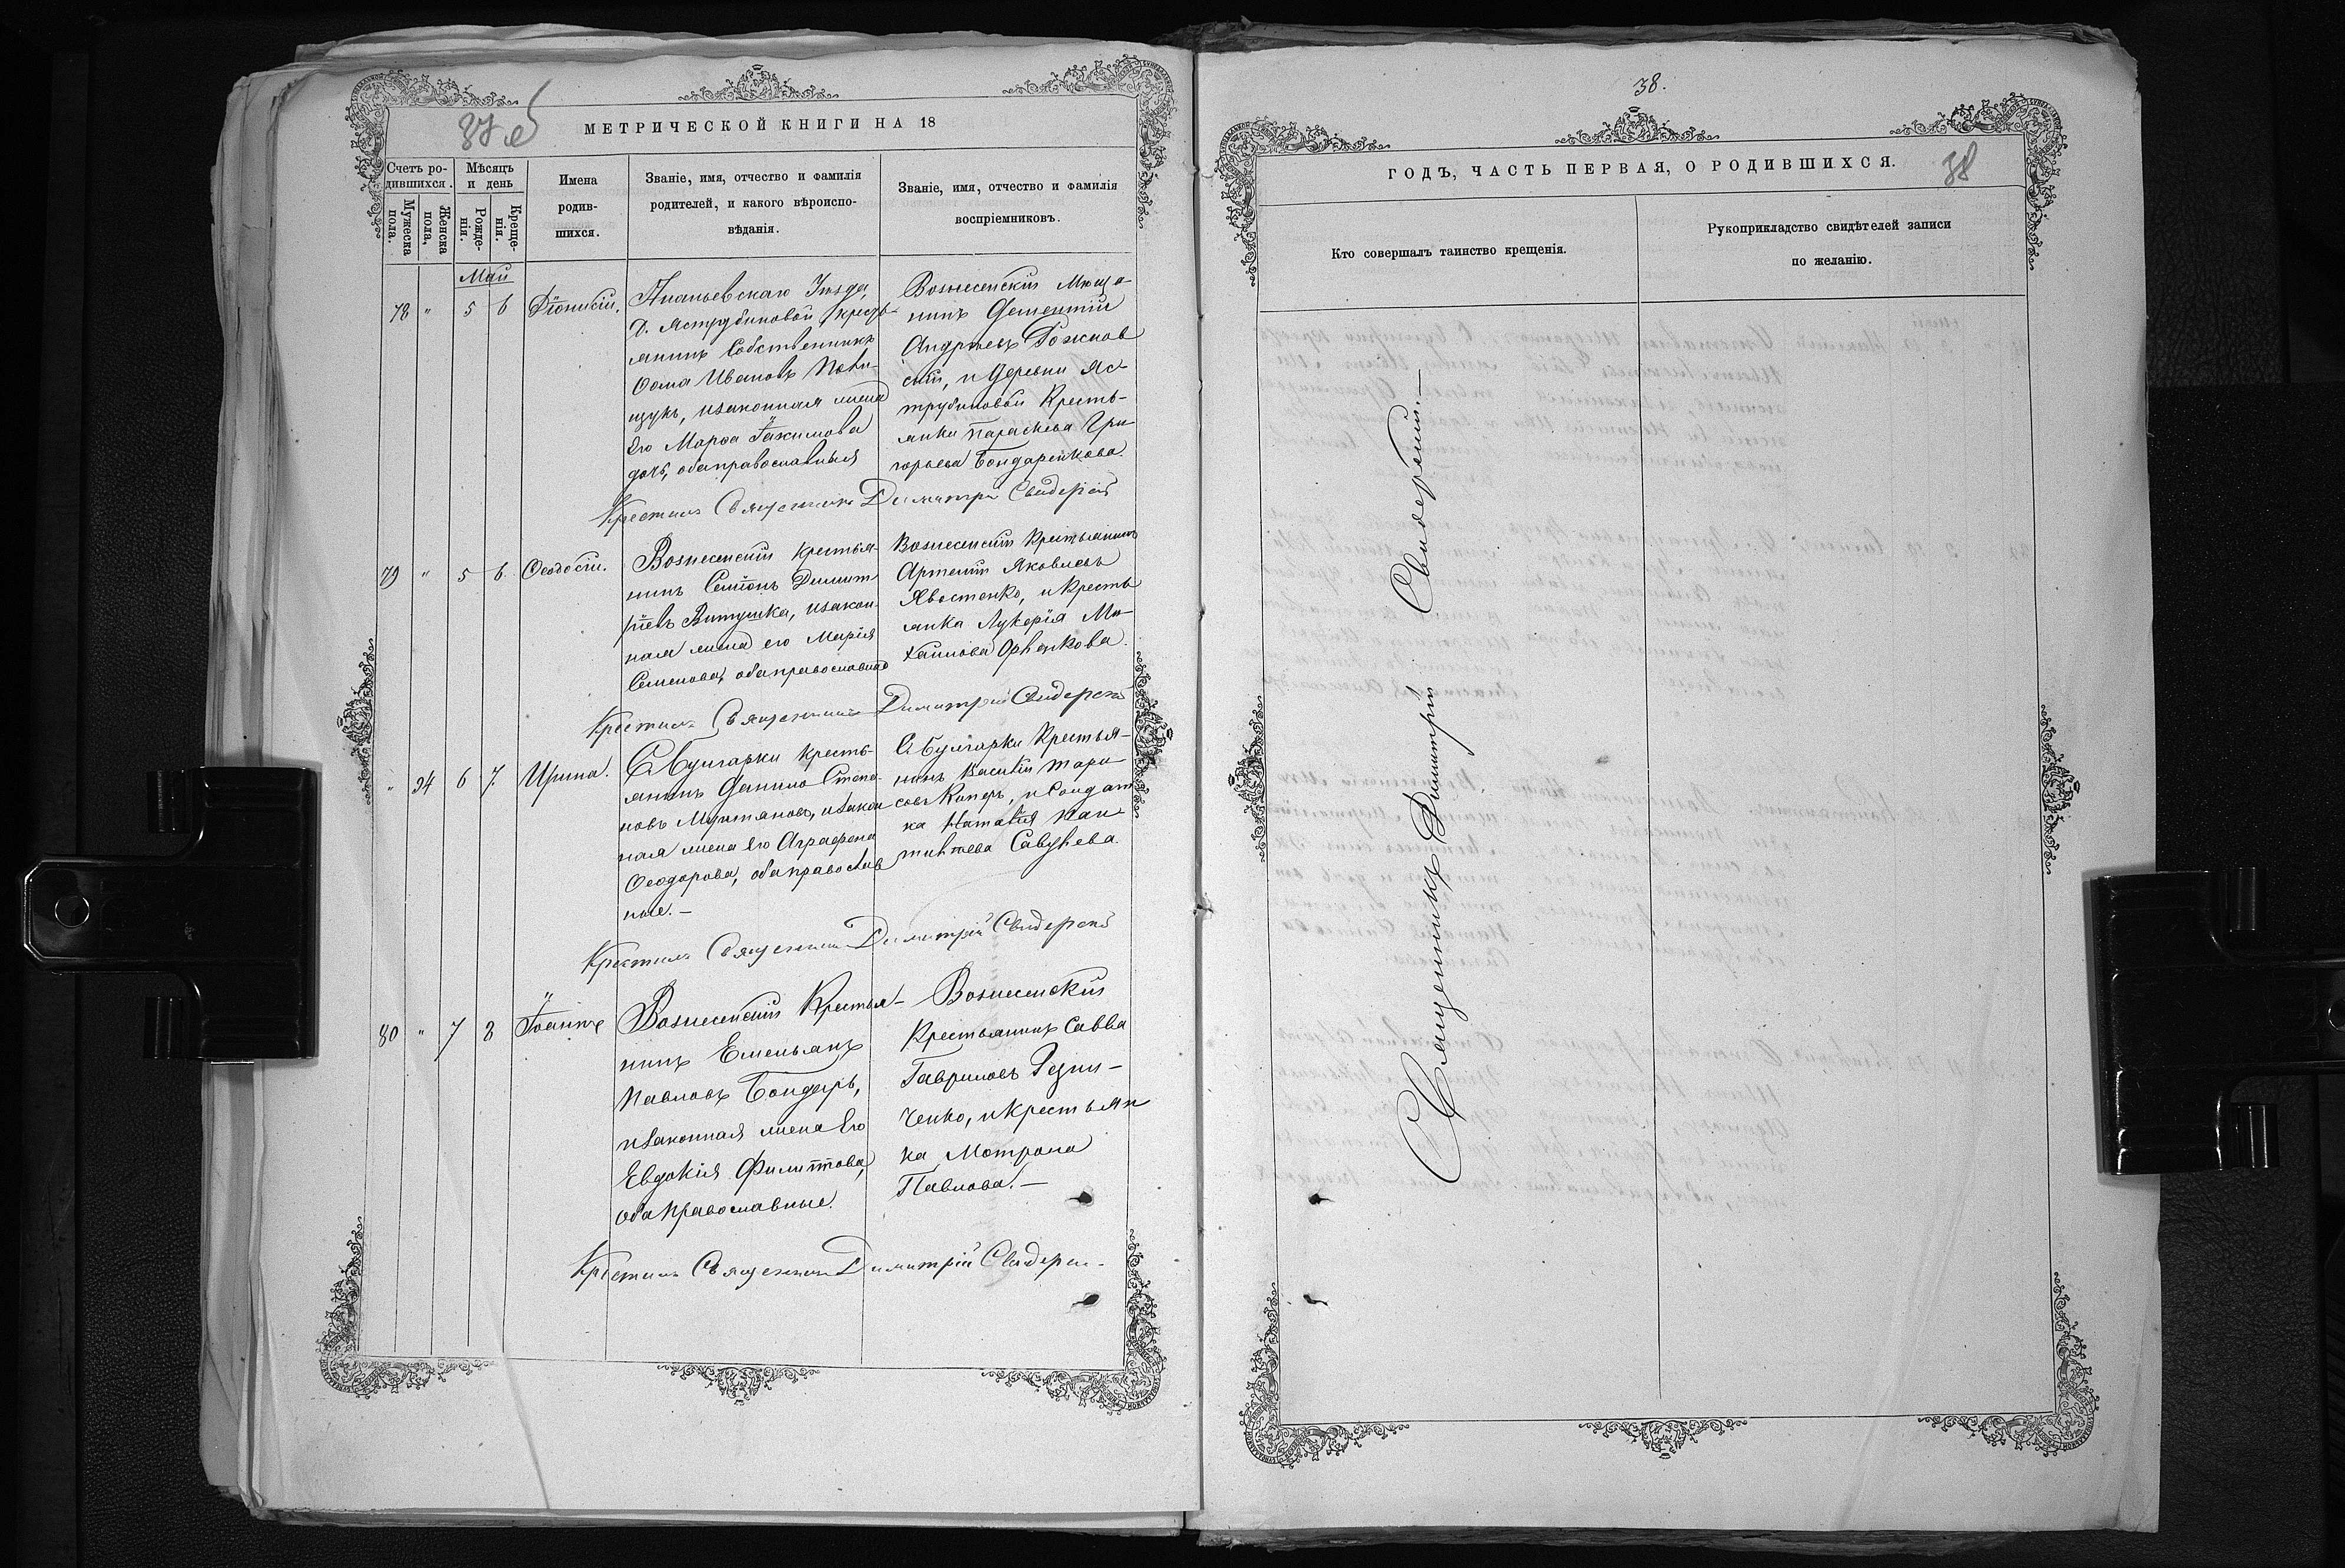 37 об
МЕТРИЧЕСКОЙ КНИГИ НА 18
Счетъ ро-
дившихся.
Мужеска
пола.
Женска
пола,
Мѣсяцъ
и день
Рожде-
нія.
Креще-
нія.
Имена
родив-
шихся.
Званіе, имя, отчество и фамилія
родителей, и какого вѣроиспо-
вѣданія.
Званіе, имя, отчество и фамилія
воспріемниковъ.
Май
78 " 5 6 Діонисій.
Ананьевскаго Уѣзда,
д. Яструбиновой кресть-
янинъ Собственникъ
Ѳома Ивановъ
и законная жена
Его Марѳа Іакимова
оба православныя
Вознесенскій Мѣща-
нинъ Дементій
Андреевъ Божков
скій, и Деревни Яс-
трубиновой Кресть-
янка Параскева Гри-
горьева Бондаренкова.
Крестилъ Священникъ Димитрій Свидерскій
79 " 5 6. Ѳеодосій.
Вознесенскій крестья-
нинъ Семіонъ Димит
ріевъ Витушка, и закон-
ная жена его Марія
Семенова, оба православные
Вознесенскій Крестьянинъ
Артемій Яковлевъ
Хвостенко, и Кресть
янка Лукерія Ми-
хаилова
Крестилъ Священникъ Димитрій Свидерскій
" 34 6 7. Ирина.
С Булгарки кресть-
янинъ Данило Степа
новъ Мунтяновъ, и закон
ная жена его Аграфена
Ѳеодорова, оба православ
ные.—
С Булгарки Крестья-
нинъ Василій Тара
совъ Коперъ, и Солдат
ка Наталія Кал
Савунева.
Крестилъ Священникъ Димитрій Свидерскій
80 " 7 8 Іоаннъ
Вознесенскій Крестья-
нинъ Емельянъ
Павловъ Бондарь,
и законная жена Его
Евдокія Филиппова,
оба Православные.
Вознесенскій
Крестьянинъ Савва
Гавриловъ Резни-
ченко, и Крестьян
ка Мотрона
Павлова.—
Крестилъ Священникъ Димитрій Свидерскі
38.
38
ГОДЪ, ЧАСТЬ ПЕРВАЯ, О РОДИВШИХСЯ.
Кто совершалъ таинство крещенія.
Рукоприкладство свидѣтелей записи
по желанію.
Священникъ Димитрій Свидерскій.—